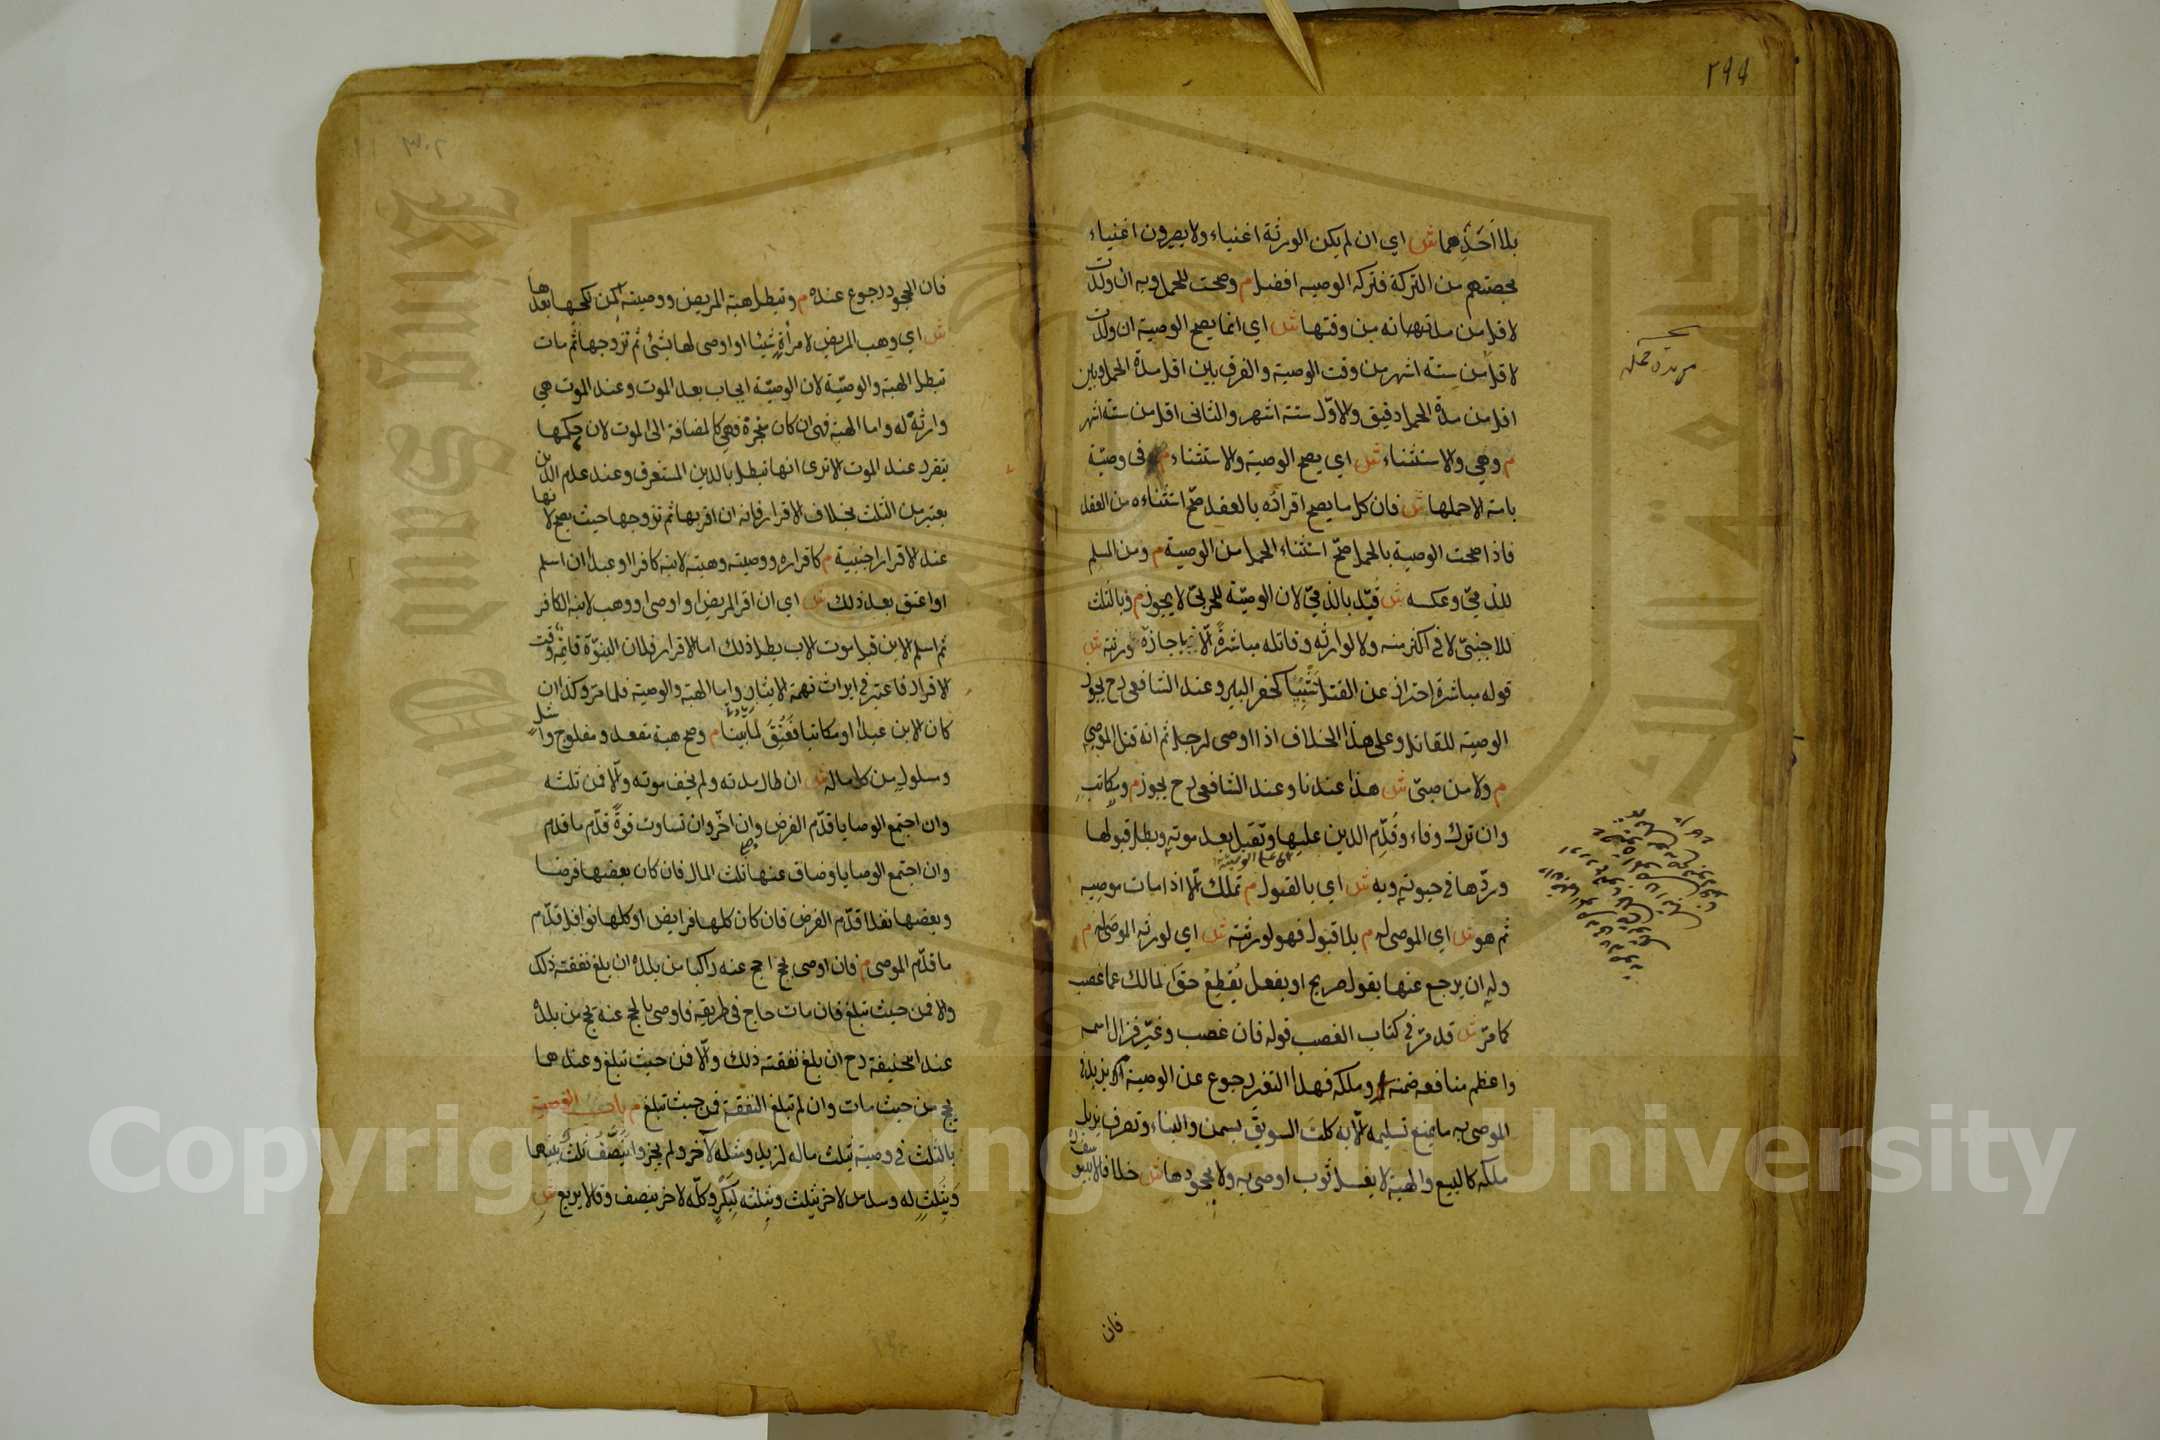 ٢٩٩
بلا احدهما ش اي ان لم يكن الورثة اغنياء ولا يصيرون اغنياء
بحصتهم من التركة فتركه الوصية افضل م وصحت للحمل وبه ان ولدت
لاقل من مدتها نه من وقتها ش اي انما يصح الوصية ان ولدت
لاقل من ستة اشهر من وقت الوصية والفرق بين اقل مدة الحمل وبين
اقل من مدة الحمل دقيق والاول ستة اشهر والثانى اقل من ستة اشهر
م وهي والاستثناء ش اي يصح الوصية والاستثناء م فى وصية
بامة الا حملها ش فان كل ما يصح افراده بالعقد صح استثناءه من العقد
فاذا صحت الوصية بالحمل صح استثناء الحمل من الوصية م ومن المسلم
للذمي وعكسه ش قيد بالذمي لان الوصية للحربي لا يجوز م وبالثلث
للاجنبي لا فى اكثر منه ولا لوارثه وقاتله مباشرة الا باجازة ورثته ش
قوله مباشرة احتراز عن القتل تسبيبا كحفر البير وعند الشافعى رح يجوز
الوصية للقاتل وعلى هذا الخلاف اذا اوصى لرجل ثم انه قتل الموصي
م ولا من صبي ش هذا عندنا وعند الشافعى رح يجوز م ومكاتب
وان ترك وفاء وقدم الدين عليها وتقبل بعد موته وبطل قبولها
وردها فى حيوته وبه ش اي بالقبول م تملك الا اذا مات موصيه
ثم هو ش اي الموصى له م بلا قبول فهو لورثته ش اي لورثه الموصى له م
وله ان يرجع عنها بقول صريح او بفعل يقطع حق المالك عما غصب
كما مر ش قد مر في كتاب الغصب قوله فان غصب وغير فزال اسمه
واعظم منافعه ضمنه وملكه فهذا التغير رجوع عن الوصية م او يزيد فى
الموصى به ما يمنع تسليمه الا به كلت السويق بسمن والبناء وتصرف يزيل
ملكه كالبيع والهبة لا بغسل ثوب اوصى به ولا بجحودها ش خلافا لابي يوسف
فان
فان الجحود رجوع عنده م وتبطل هبة المريض ووصيته لمن نكحها بعدها
ش اي وهب المريض لامرأة شيئا او اوصى لها بشئ ثم تزوجها ثم مات
تبطل الهبة والوصية لان الوصية ايجاب بعد الموت وعند الموت هي
وارثة له واما الهبة فهى ان كان منجزة فهى كالمضافة الى الموت لان حكمها
يتقرر عند الموت لا ترى انها تبطل بالدين المستغرق وعند عدم الدين
يعتبر من الثلث بخلاف الاقرار فانه ان اقر بها ثم تزوجها حيث يصح لانها
عند الاقرار اجنبية م كاقراره ووصيته وهبته لابنه كافرا او عبدا ان اسلم
او اعتق بعد ذلك ش اي ان اقر المريض او اوصى او وهب لابنه الكافر
ثم اسلم الابن قبل موت الاب بطل ذلك اما الاقرار فلان البنوة قائمة وقت
الاقرار فاعتبر في ايراث تهمة الايثار واما الهبة والوصية فلما مر وكذا ان
كان الابن عبدا او مكاتبا فعتق لما بينا م وصح هبة مقعد ومفلوج واشل
ومسلول من كل ماله ش ان طال مدته ولم يخف موته والا فمن ثلثه
وان اجتمع الوصايا قدم الفرض وان اخر وان تساوت قوة قدم ما قدم
وان اجتمع الوصايا وضاق عنها ثلث المال فان كان بعضها فرضا
وبعضها نفلا قدم الفرض فان كان كلها فرايض او كلها نوافل قدم
ما قدم الموصى م فان اوصى بحج احج عنه راكبا من بلده ان بلغ نفقته ذلك
والا فمن حيث تبلغ فان مات حاج فى طريقه فاوصى بالحج عنه يحج من بلده
عند ابي حنيفة رح ان بلغ نفقته ذلك والا فمن حيث تبلغ وعندهما
يحج من حيث مات وان لم تبلغ النفقة فمن حيث تبلغ م باب الوصية
بالثلث في وصية بثلث ماله لزيد ومثله لآخر ولم يجيزوا ينصف ثلثه بينهما
وبثلث له وسدس لاخر يثلث وبثلثه لبكر وكله لاخر ينصف وقالا يربع ش
Copyright © King Saud University